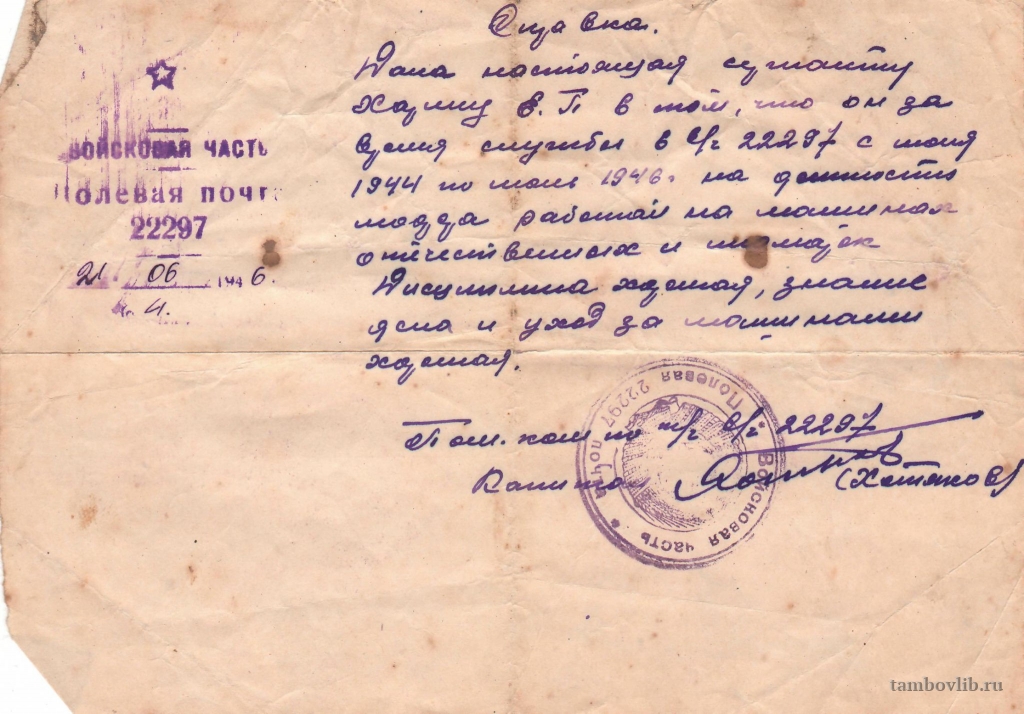 Справка.
Дана настоящая сержанту
Е. П в том, что он за
время службы в в/ч 22297 с июня
1944 по июнь 1946г на должности
работал на машинах
отечественных и
Дисциплина хорошая, знание
дела и уход за машинами
хорошая.
Пом. ком по т/ч в/ч 22297
Капитан (Хотяков)
ВОЙСКОВАЯ ЧАСТЬ
Полевая почта
22297
21 06 1946.
Войсковая часть * Полевая почта * 22297
tambovlib.ru